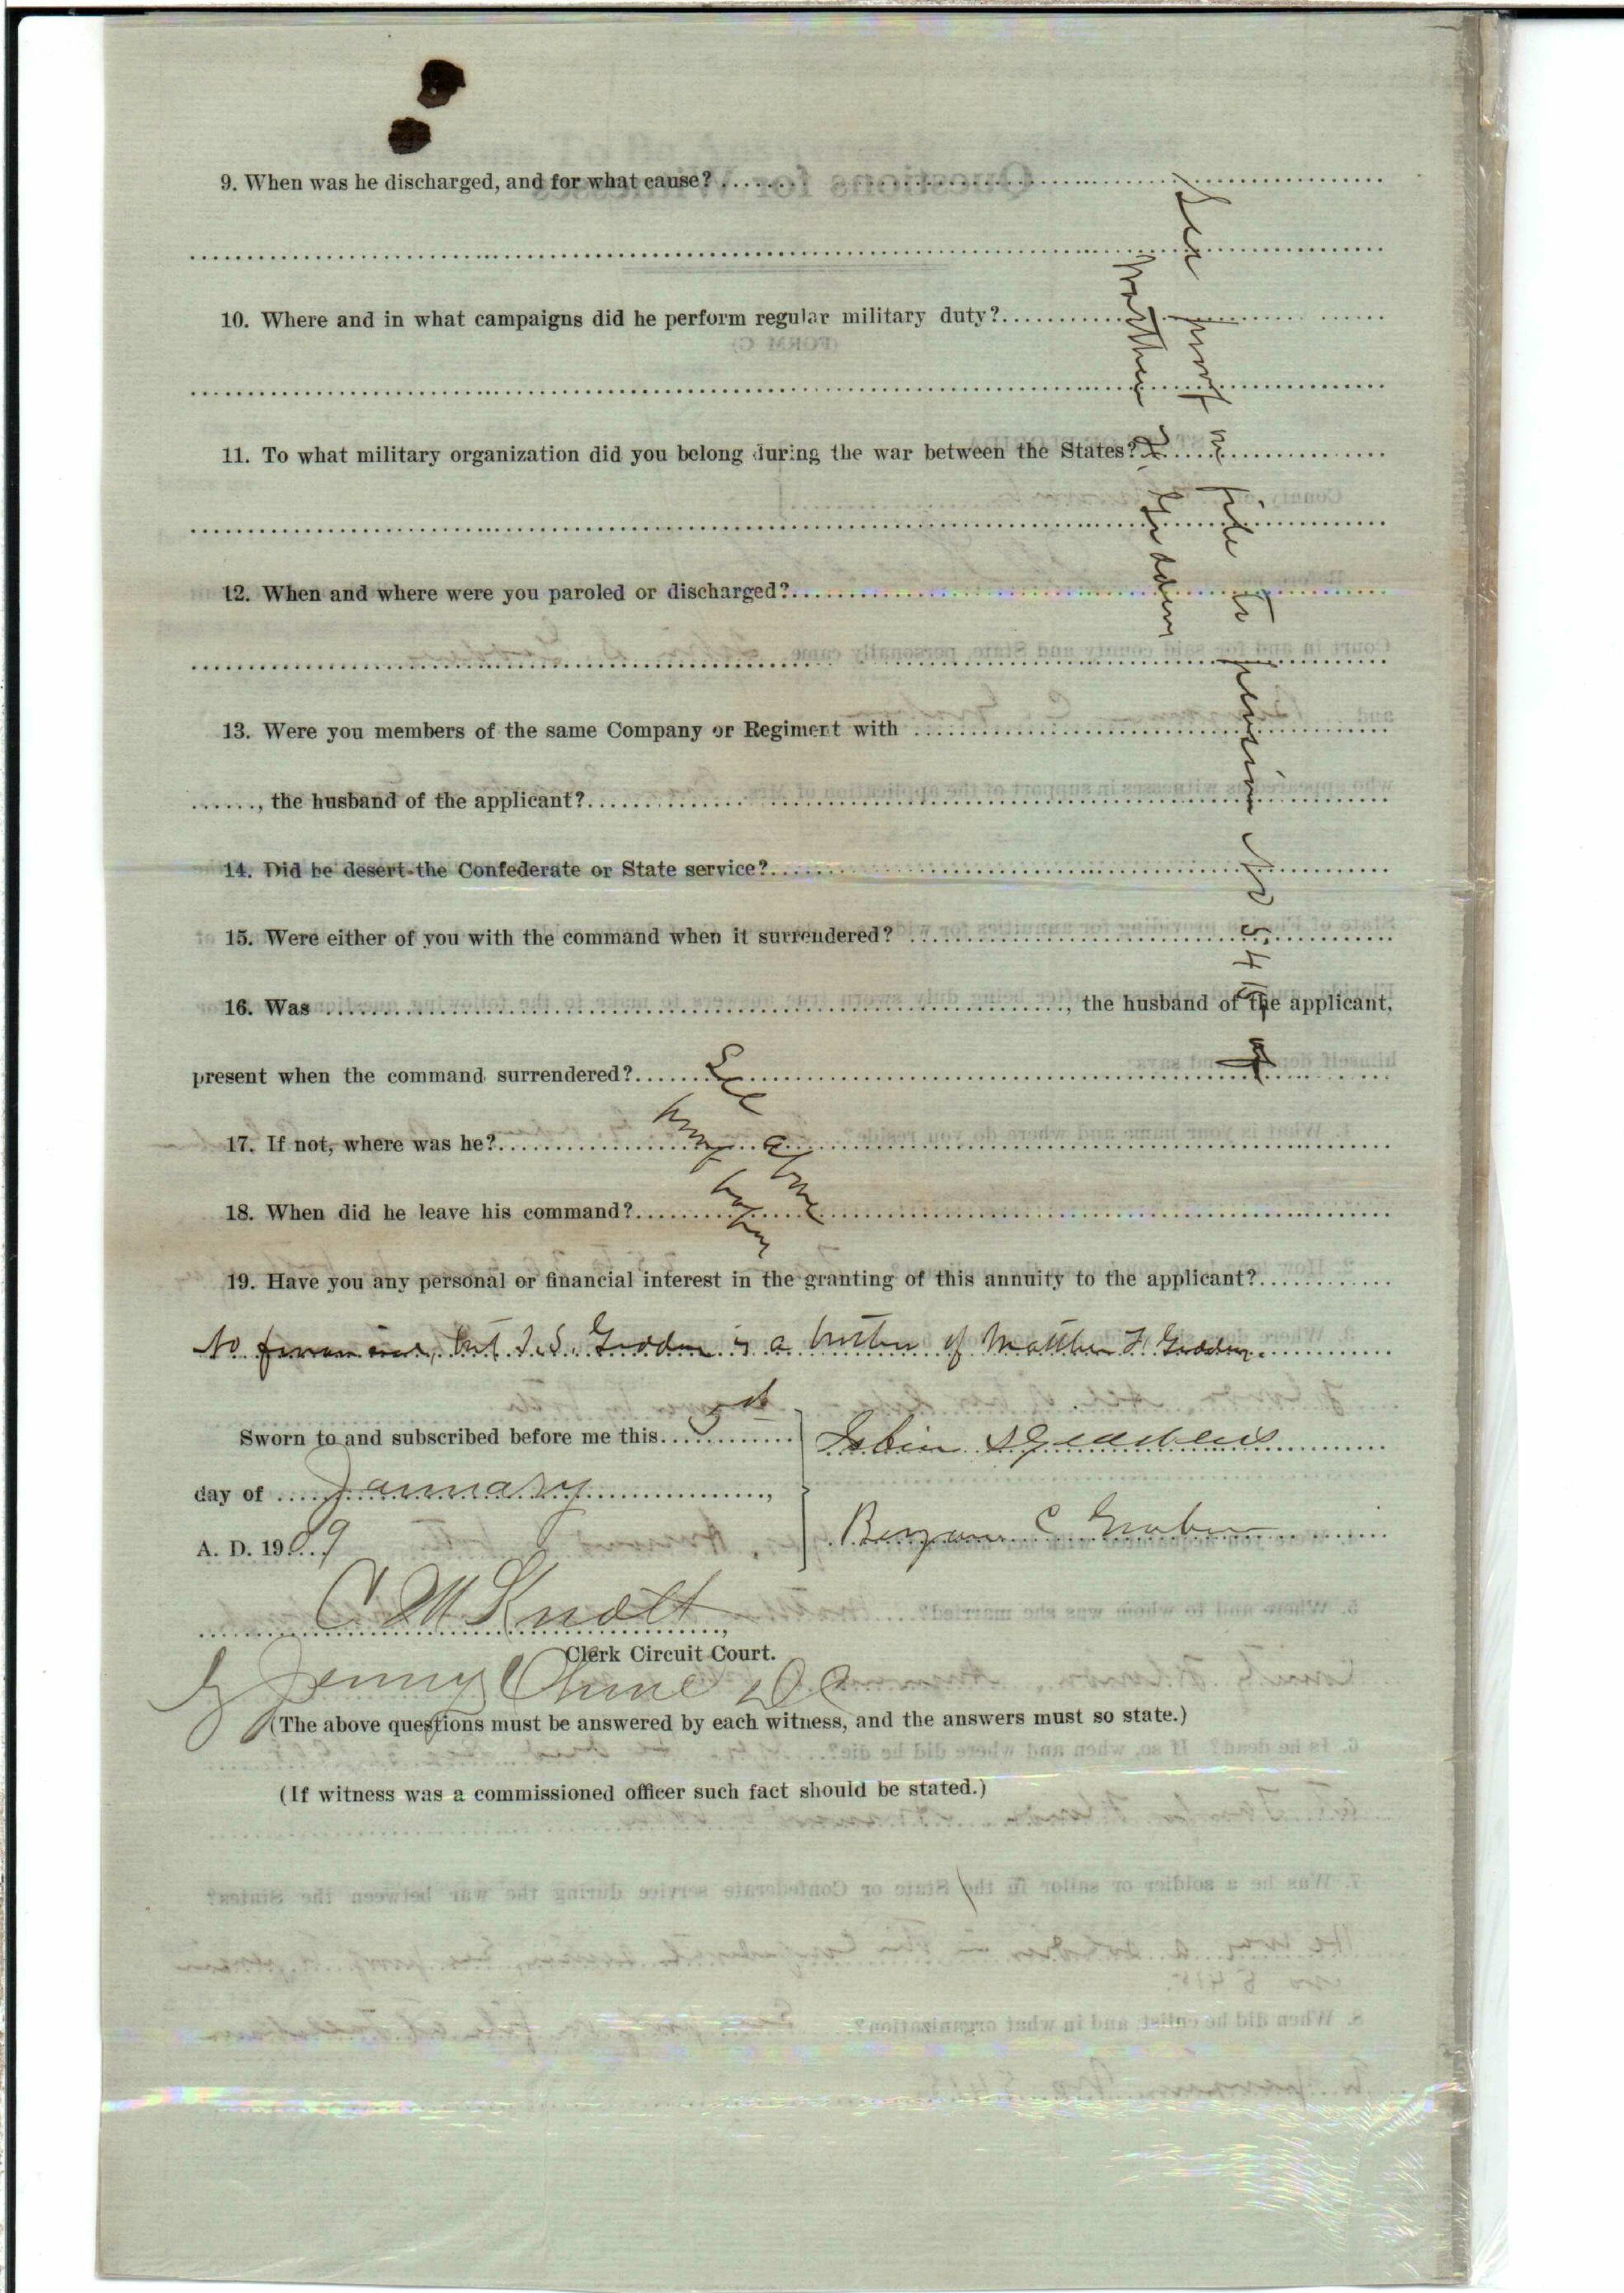 9. When was he discharged, and for what cause?
10. Where and in what campaigns did he perform regular military duty?
11. To what military organization did you belong during the war between the States?
12. When and where were you paroled or discharged?
13. Were you members of the same Company or Regiment with
, the husband of the applicant?
14. Did he desert the Confederate or State service?
15. Were either of you with the command when it surrendered?
16. Was , the husband of the applicant,
present when the command surrendered?
17. If not, where was he?
18. When did he leave his command?
See proof on file to pension No 5415
of
See above
proof
19. Have you any personal or financial interest in the granting of this annuity to the applicant?
No financial, but I. S. Giddens is a brother of Matthew F. Giddens.
Sworn to and subscribed before me this
day of January,
A. D. 1909
Benjamin C
C M Knott,
Clerk Circuit Court.
By Jenny DC
(The above questions must be answered by each witness, and the answers must so state.)
(If witness was a commissioned officer such fact should be stated.)